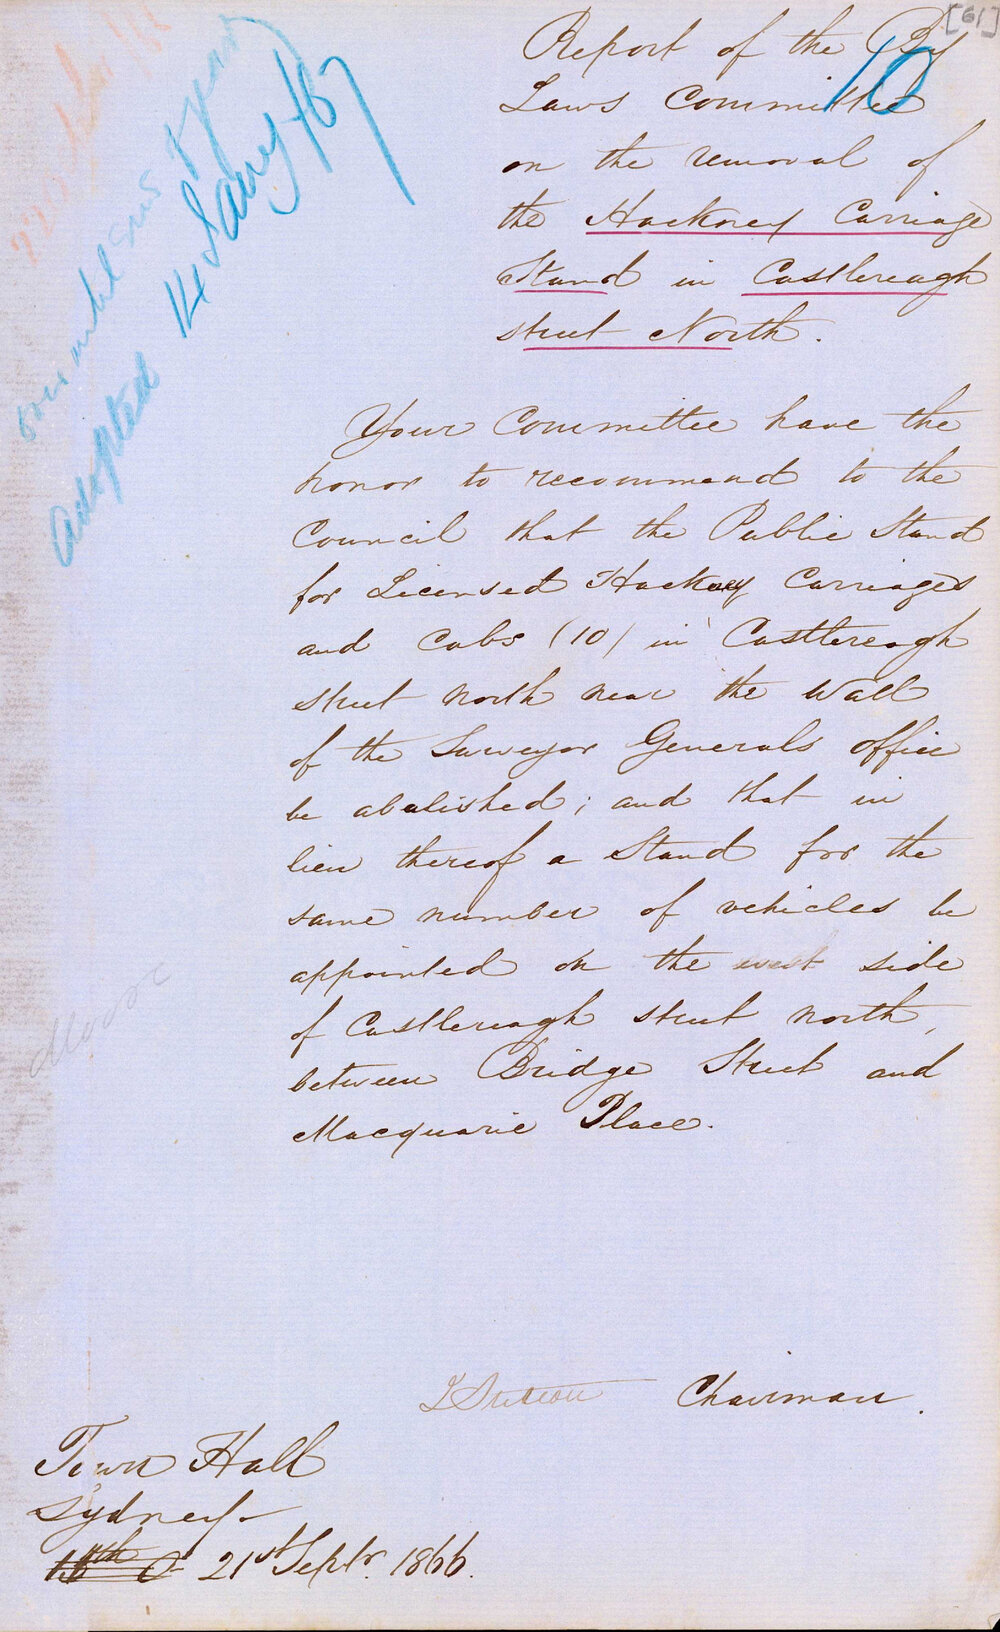 [61]
10
Report of the By
Laws Committee
on the removal of
the Hackney Carriage
Stand in Castlereagh
street North.
Adopted 14 Jany /67
Your Committee have the
honor to recommend to the
Council that the Public Stand
for Licensed Hackney Carriages
and Cabs (10) in Castlereagh
street north near the Wall
of the Surveyor Generals Office
be abolished; and that in
lieu thereof a Stand for the
same number of vehicles be
appointed on the west side
of Castlereagh street north,
between Bridge Street and
Macquarie Place.
Chairman.
Town Hall
Sydney
21st Septr. 1866.